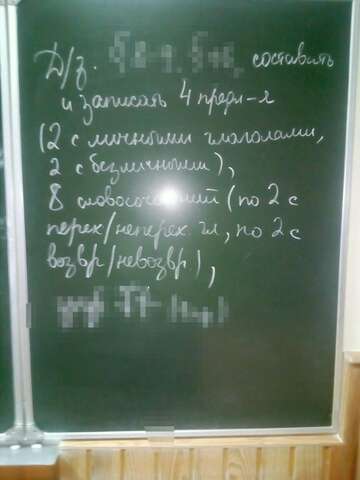 Д/з. составить
и записать 4 предл-я
(2 с личными глаголами,
2 с безличными),
8 словосочетаний (по 2 с
перех/неперех гл, по 2 с
возвр/невозвр),